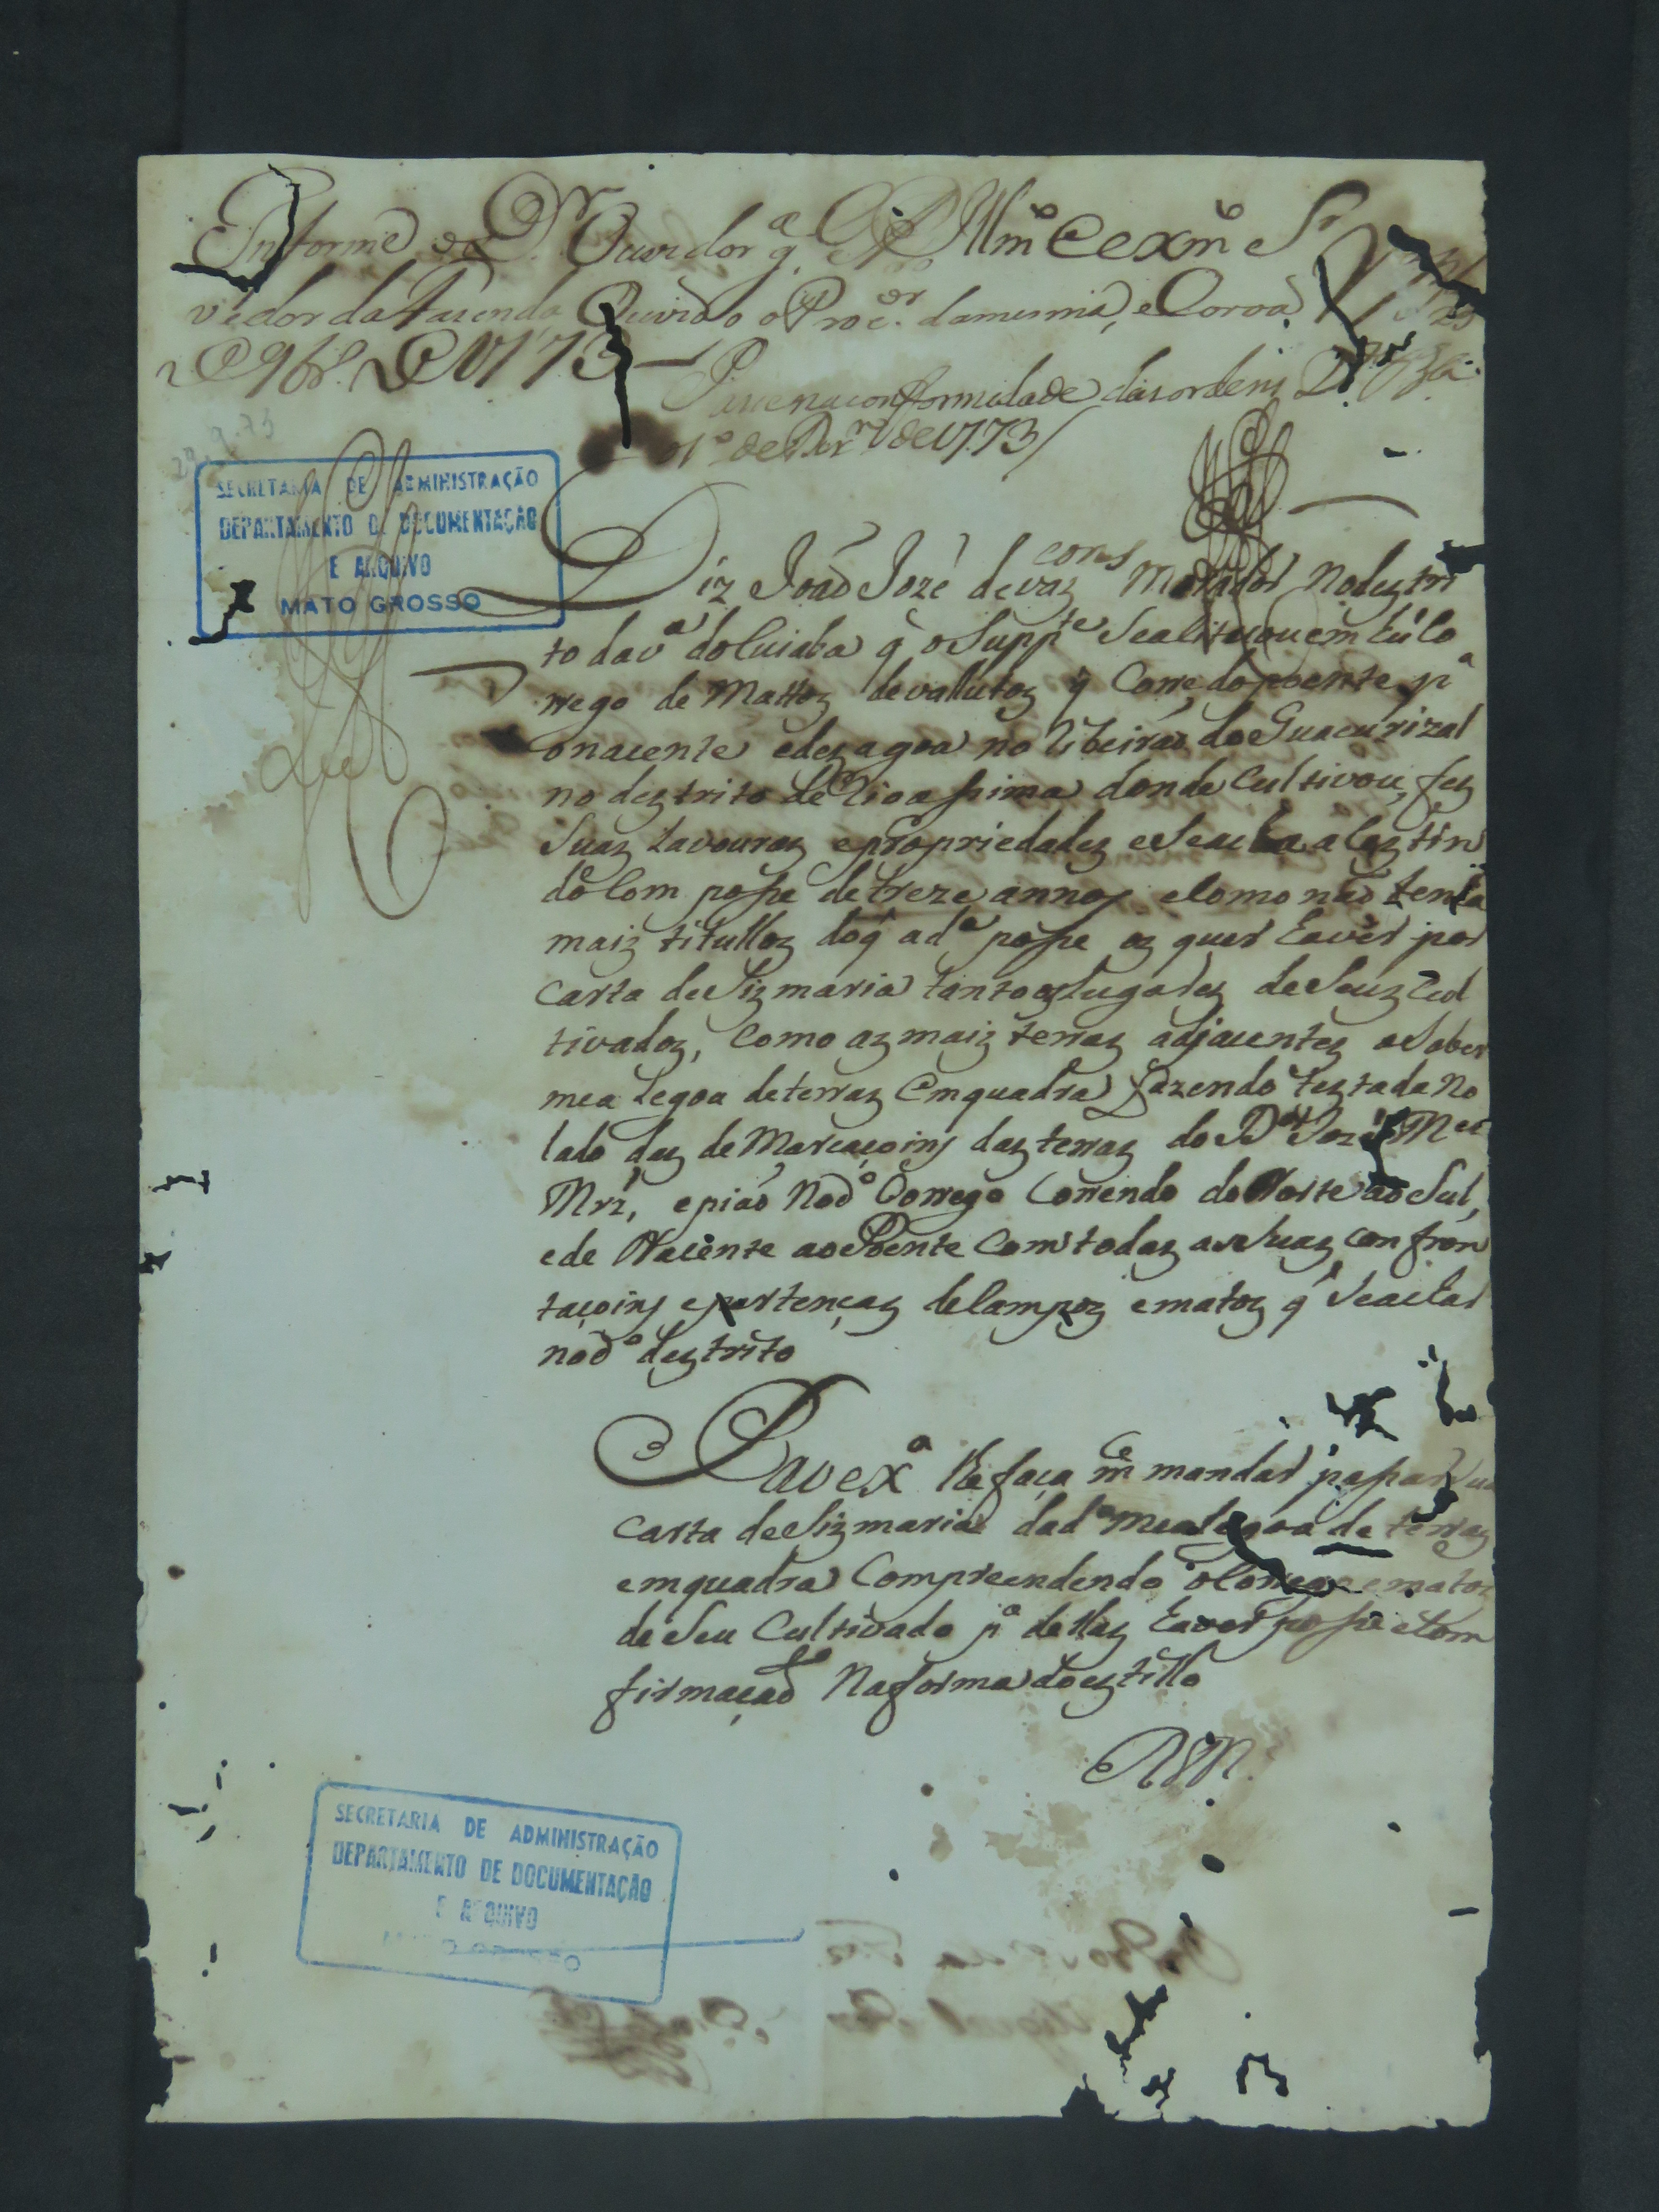 Informe o D.r Ouvidor g.al Ill.mo e Ex.mo S.r
vedor da Fazenda Ouvido o Proc.or da mesma, e Coroa
de 1773
Passe na conformidade das ordens
1º de de 1773
29-9-73
SECRETARIA DE ADMINISTRAÇÃO
DEPARTAMENTO DE DOCUMENTAÇÃO
E ARQUIVO
MATO GROSSO
Diz João Jozé de vas.cons Morador no destri
to da v.a do Cuiabá q̃ o Supp.te Se a Cituou em hú Co
rrego de Mattos devallutos q̃ Corre do poente p.a
o nacente e dezagoa no Ribeirão do Guacurizal
no destrito de Rio assima donde Cultivou, fes
Suas Lavouras e propriedades e Se acha a Cestin
do Com posse de treze annos e Como não tenha
mais titullos doq̃ a d.a posse os quer haver por
Carta de Sizmaria tanto os Lugares de Seus Cul
tivados, Como as mais terras adjacentes a Saber
mea Legoa de terras em quadra fazendo testada no
lado das demarcaçoins das terras do D.or Jozé M.el
Mrz, e pião no d.o Corrego Correndo do Norte ao Sul,
e de Nacente ao Poente Com todas as Suas confron
taçoins e pertenças de Campos e matos q̃ Se achar
no d.o destrito
P a V Ex.a lhe faça m.ce mandar passar Sua
Carta de Sizmaria da d.a mea legoa de terras
em quadra Comprehendendo o Corrego e matos
de Seu Cultivado p.a dellas haver posse e Com
firmação Na forma do estillo
E R M.
SECRETARIA DE ADMINISTRAÇÃO
DEPARTAMENTO DE DOCUMENTAÇÃO
E ARQUIVO